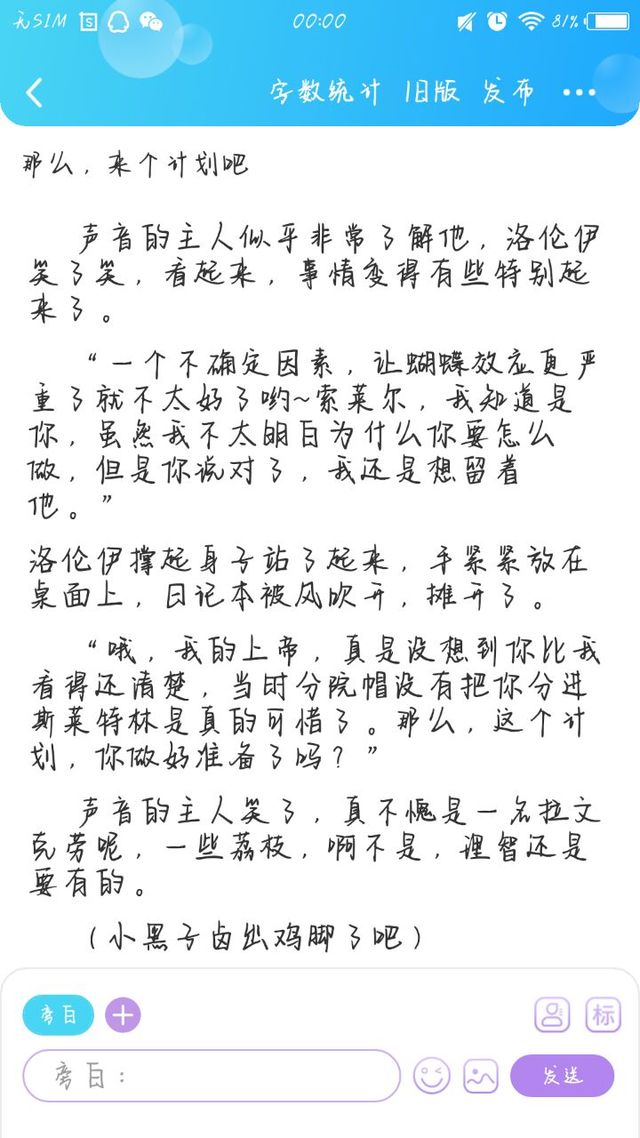 无SIM 00:00 81%
字数统计 旧版 发布
那么，来个计划吧
声音的主人似乎非常了解他，洛伦伊
笑了笑，看起来，事情变得有些特别起
来了。
“一个不确定因素，让蝴蝶效应更严
重了就不太好了哟~索莱尔，我知道是
你，虽然我不太明白为什么你要怎么
做，但是你说对了，我还是想留着
他。”
洛伦伊撑起身子站了起来，手紧紧放在
桌面上，日记本被风吹开，摊开了。
“哦，我的上帝，真是没想到你比我
看得还清楚，当时分院帽没有把你分进
斯莱特林是真的可惜了。那么，这个计
划，你做好准备了吗？”
声音的主人笑了，真不愧是一名拉文
克劳呢，一些荔枝，啊不是，理智还是
要有的。
（小黑子卤出鸡脚了吧）
旁白
标
旁白：
发送